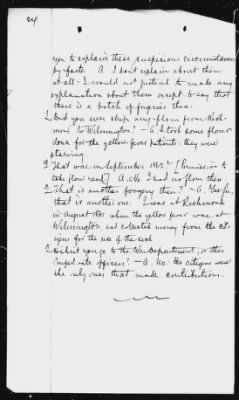 24
you to explain these suspicious circumstances
by facts. A. I dont explain about them
at all. I would not pretend to make any
explanation about them except to say that
there is a batch of forgeries there.
Q Did you ever ship any flour from Rich-
mond to Wilmington? — A. I took some flour
down for the yellow fever patients: they were
starving.
Q That was in September 1862? [Permission to
take flour read] A. No. I had no flour then
Q That is another forgery then? — A. Yes sir,
that is another one. I was at Richmond
in August 1861 when the yellow fever was at
Wilmington, and collected money from the cit-
izens for the use of the sick
Q Did not you go to the War Department, or other
Confederate officers? — A. No: the citizens were
the only ones that made contributions.